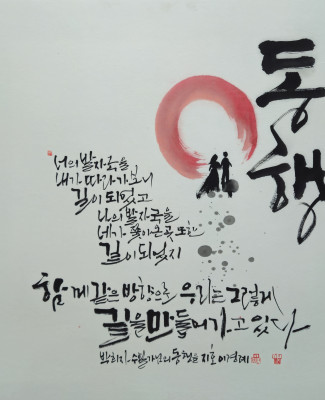 동행
너의 발자국을
내가 따라가보니
길이 되었고
나의 발자국을
네가 또한
길이 되었지
함께 같은 방향으로 우리는 그렇게
길을 만들어가고 있다
동행을